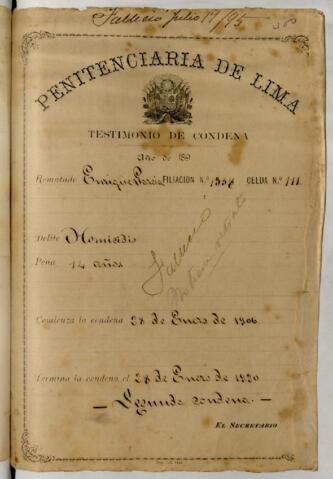 Falleció Julio 17/95
PENITENCIARIA DE LIMA
TESTIMONIO DE CONDENA
Año de 189
Rematado Enrique FILIACIÓN N.º CELDA N.º 111
Delito Homicidio
Pena 14 años
Falleció
No tiene retrato
Comienza la condena 28 de Enero de 1906
Termina la condena el 28 de Enero de 1920
— Segunda condena. —
EL SECRETARIO